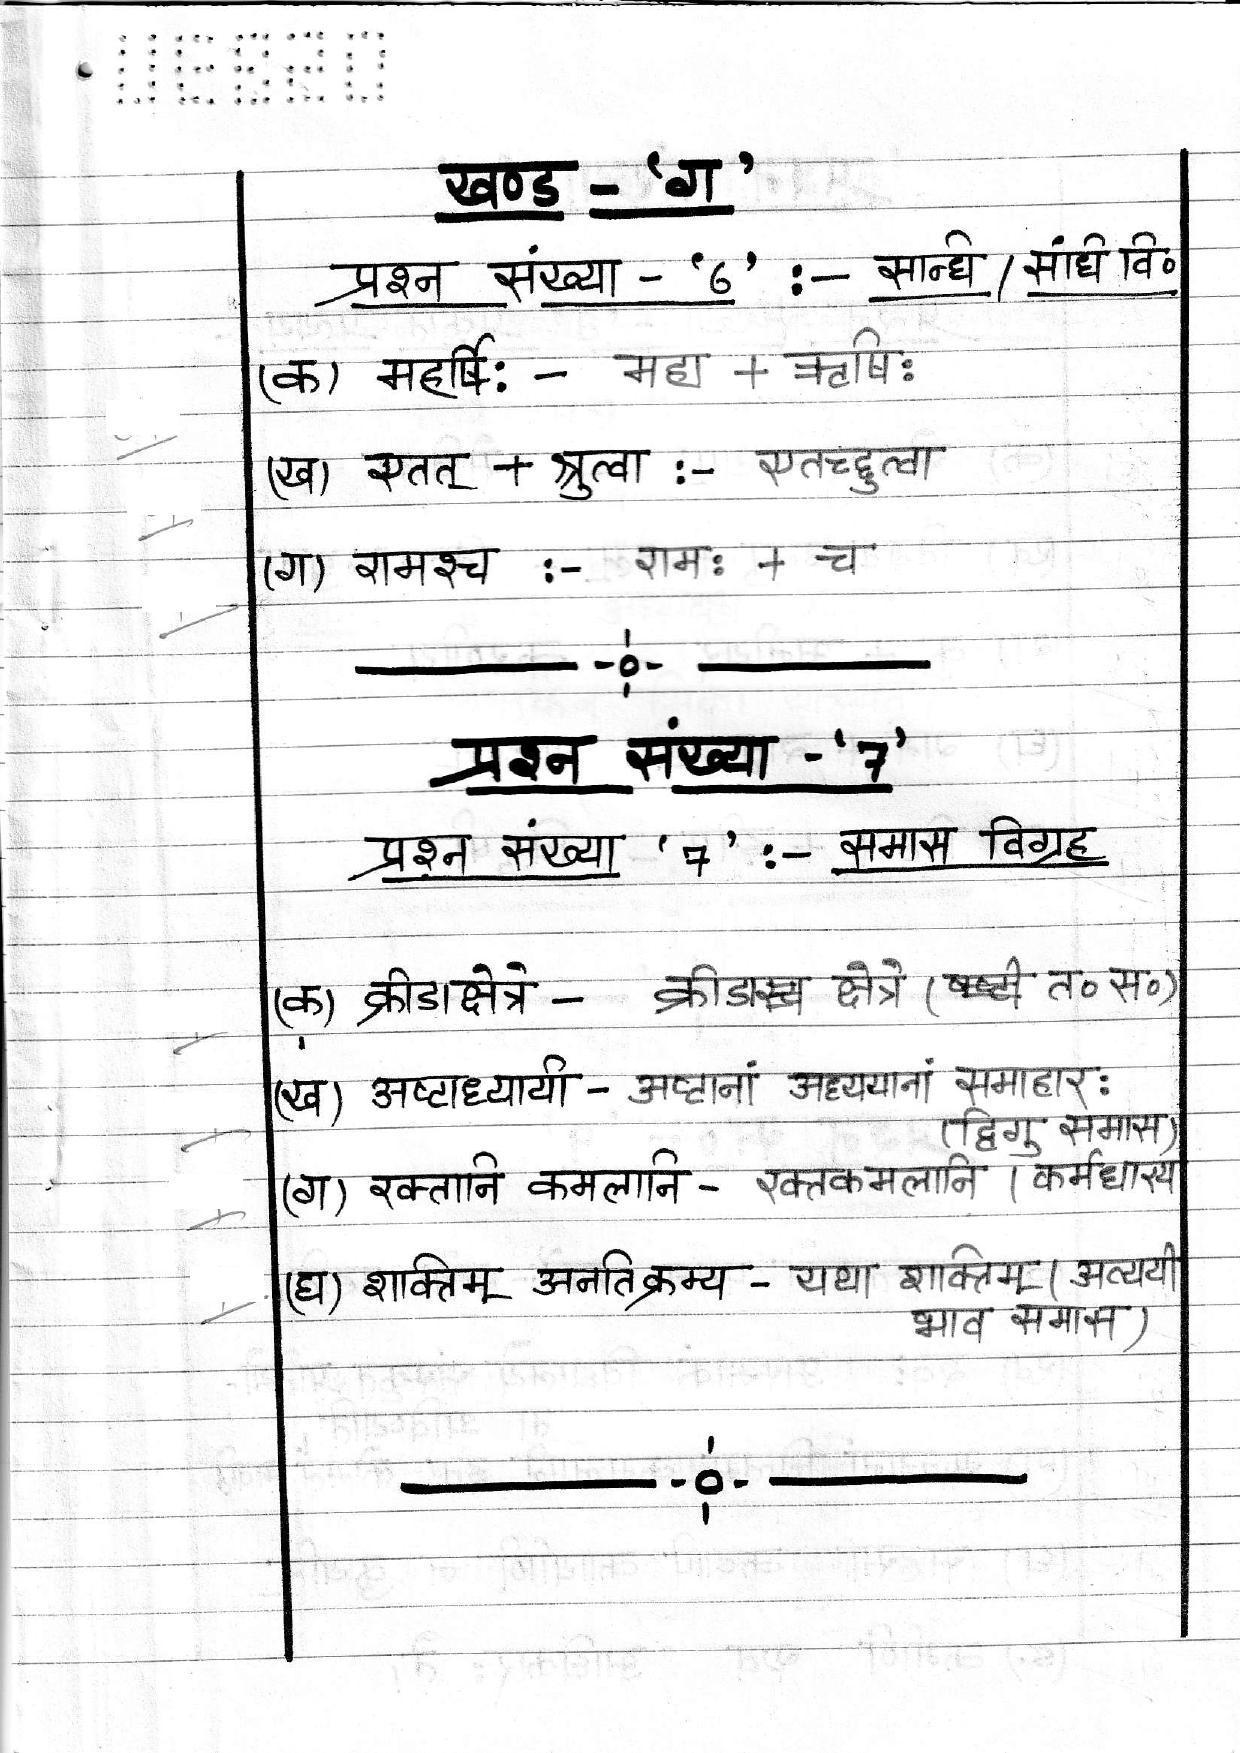 UEBRD
खण्ड - ‘ग’
प्रश्न संख्या - ‘6’ :- सान्धि / संधि वि०
(क) महर्षि: - महा + ऋषि:
(ख) एतत् + श्रुत्वा :- एतच्छ्रुत्वा
(ग) रामश्च :- राम: + च
प्रश्न संख्या - ‘7’
प्रश्न संख्या ‘7’ :- समास विग्रह
(क) क्रीडाक्षेत्रे - क्रीडास्य क्षेत्रे (षष्ठी त० स०)
(ख) अष्टाध्यायी - अष्टानां अध्ययानां समाहार:
(द्विगु समास)
(ग) रक्तानि कमलानि - रक्तकमलानि (कर्मधारय
(घ) शक्तिम् अनतिक्रम्य - यथा शक्तिम् (अव्ययी
भाव समास)